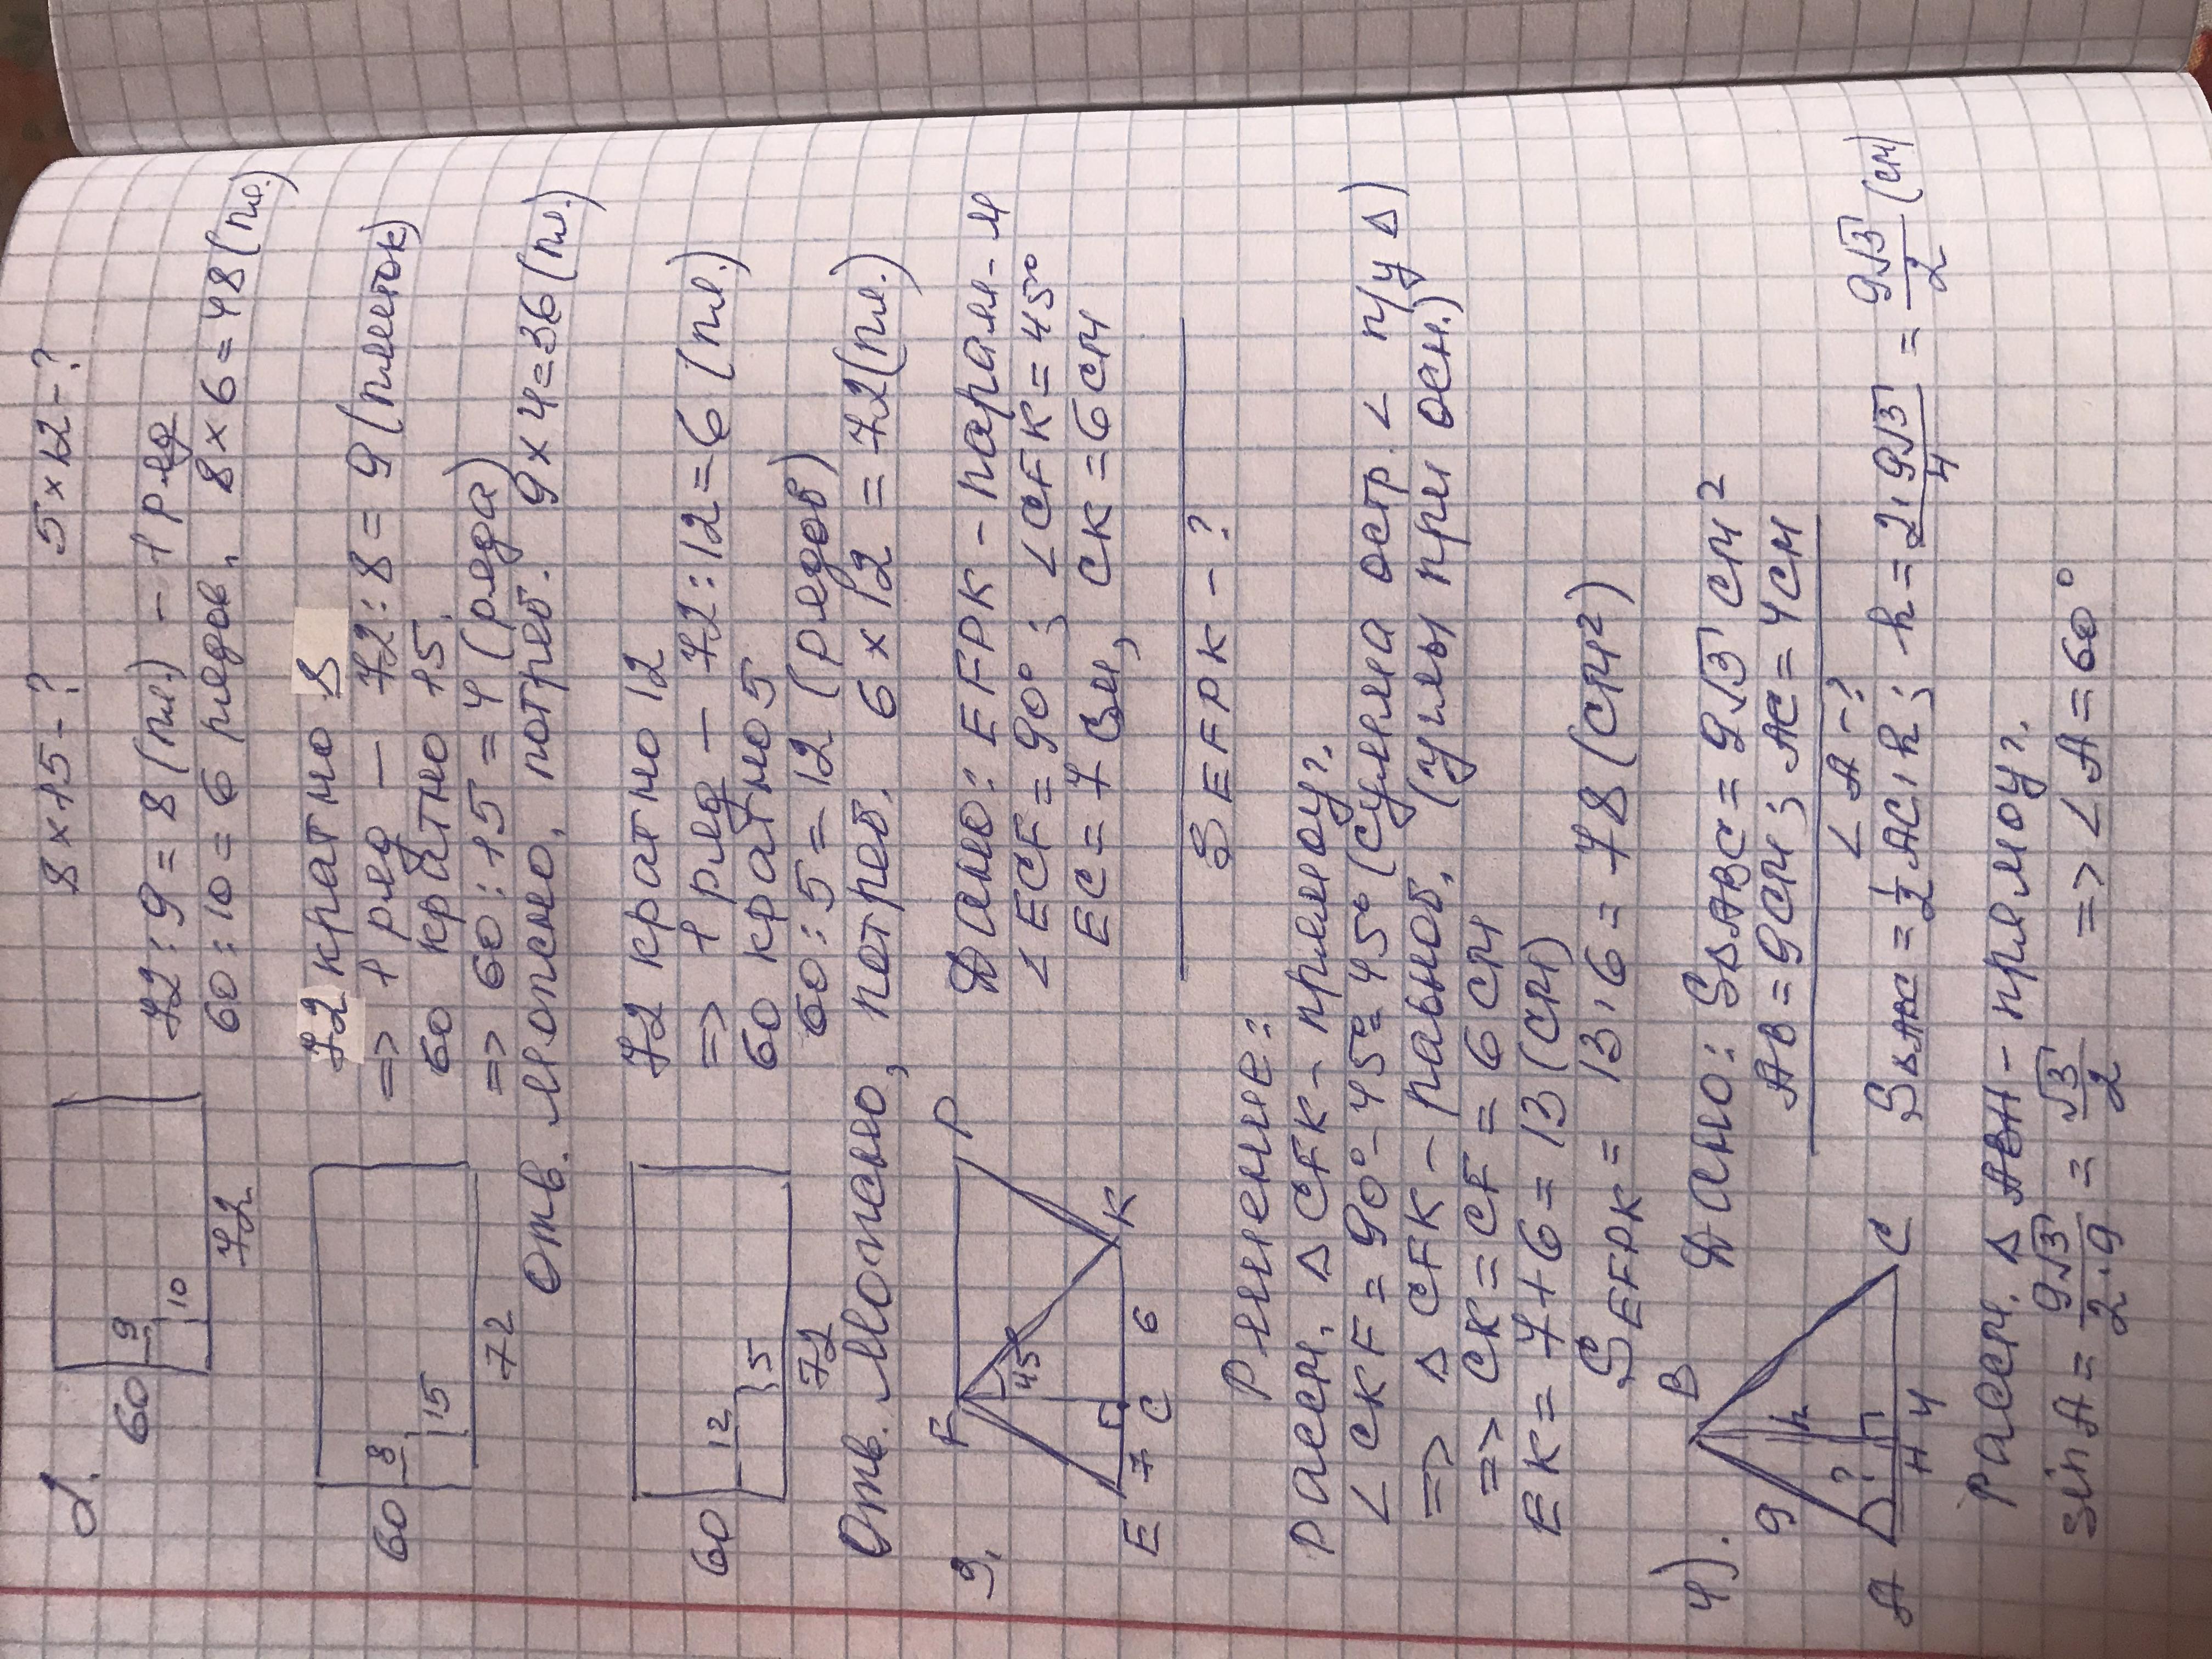 8 × 15 - ? 5 × 12 - ?
2.
60 9 10 72
72 : 9 = 8 (пл.) - 1 ряд
60 : 10 = 6 рядов, 8 × 6 = 48 (пл.)
60 8 15 72
72 кратно 8
=> 1 ряд - 72 : 8 = 9 (плиток)
60 кратно 15.
=> 60 : 15 = 4 (ряда)
Отв. Можно, потреб. 9 × 4 = 36 (пл.)
60 12 5 72
72 кратно 12
=> 1 ряд - 72 : 12 = 6 (пл.)
60 кратно 5
60 : 5 = 12 (рядов)
Отв. Можно, потреб. 6 × 12 = 72 (пл.)
3.
F P 45 E 7 C 6 K
Дано: EFPK - парал-м
∠ ECF = 90°; ∠ CFK = 45°
EC = 7 см, CK = 6 см
S EFPK - ?
Решение:
Рассм. Δ CFK - прямоуг.
∠ CKF = 90° - 45° = 45° (сумма остр. ∠ п/у Δ)
=> Δ CFK - равноб. (углы при осн.)
=> CK = CF = 6 см
EK = 7 + 6 = 13 (см)
S EFPK = 13 · 6 = 78 (см²)
4).
B 9 h ? A H 4 C
Дано: SΔABC = 9√3 см²
AB = 9 см; AC = 4 см
∠ A - ?
SΔABC = 1/2 AC · h; h = 2 · 9√3 / 4 = 9√3 / 2 (см)
Рассм. Δ ABH - прямоуг.
sin A = 9√3 / 2 · 9 = √3 / 2 => ∠ A = 60°